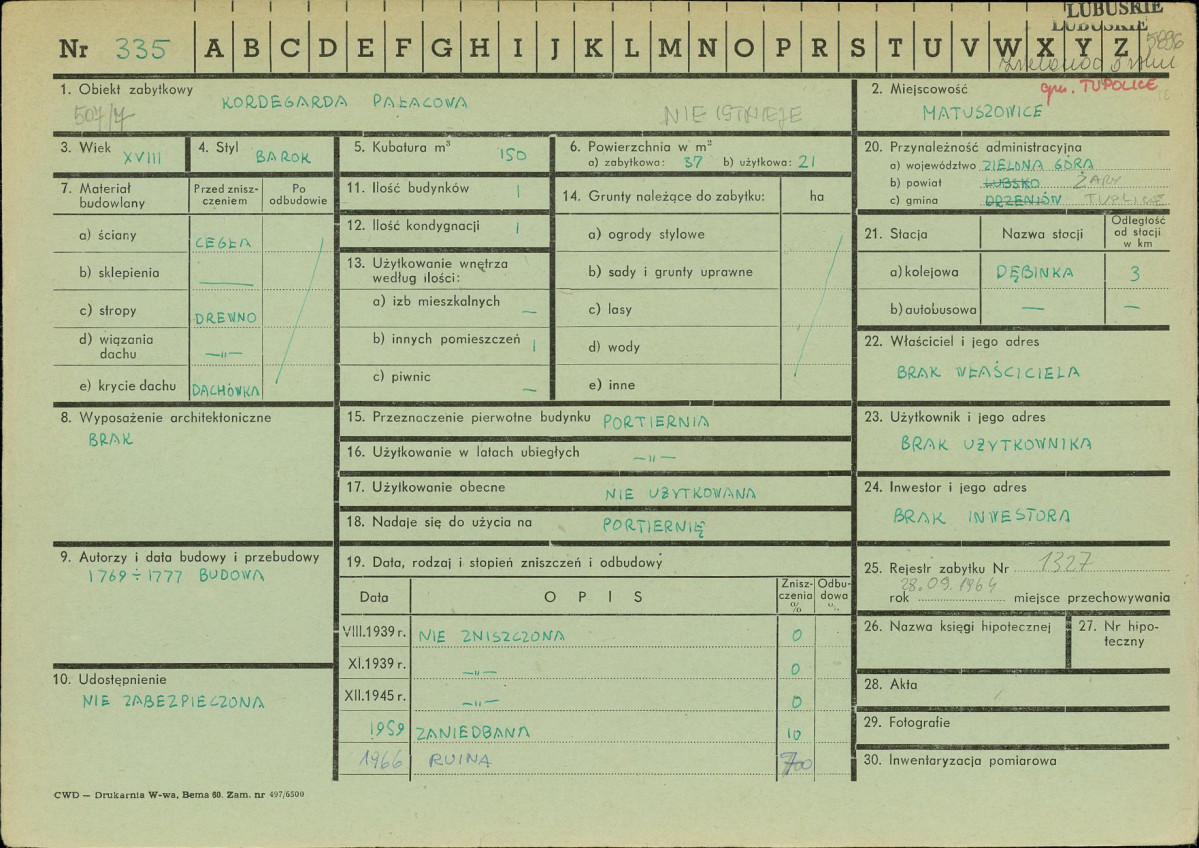 LUBUSKIE
LUBUSKIE
Nr 335 A B C D E F G H I J K L M N O P R S T U V W X Y Z 5896
1. Obiekt zabytkowy KORDEGARDA PAŁACOWA
507/7 NIE ISTNIEJE
2. Miejscowość gm. TUPOLICE
MATUSZOWICE
3. Wiek XVIII
4. Styl BAROK
5. Kubatura m³ 150
6. Powierzchnia w m²
a) zabytkowa: 37 b) użytkowa: 21
7. Materiał budowlany
Przed zniszczeniem
Po odbudowie
a) ściany CEGŁA
b) sklepienia —
c) stropy DREWNO
d) wiązania dachu —„—
e) krycie dachu DACHÓWKA
8. Wyposażenie architektoniczne
BRAK
9. Autorzy i data budowy i przebudowy
1769÷1777 BUDOWA
10. Udostępnienie
NIE ZABEZPIECZONA
11. Ilość budynków 1
12. Ilość kondygnacji 1
13. Użytkowanie wnętrza według ilości:
a) izb mieszkalnych —
b) innych pomieszczeń 1
c) piwnic —
14. Grunty należące do zabytku: ha
a) ogrody stylowe
b) sady i grunty uprawne
c) lasy
d) wody
e) inne
15. Przeznaczenie pierwotne budynku PORTIERNIA
16. Użytkowanie w latach ubiegłych —„—
17. Użytkowanie obecne NIE UŻYTKOWANA
18. Nadaje się do użycia na PORTIERNIĘ
19. Data, rodzaj i stopień zniszczeń i odbudowy
Data OPIS Zniszczenia % Odbudowa %
VIII.1939 r. NIE ZNISZCZONA 0
XI.1939 r. —„— 0
XII.1945 r. —„— 0
1959 ZANIEDBANA 10
1966 RUINA
20. Przynależność administracyjna
a) województwo ZIELONA GÓRA
b) powiat LUBSKO ŻARY
c) gmina DRZENIÓW TUPLICE
21. Stacja Nazwa stacji Odległość od stacji w km
a) kolejowa DĘBINKA 3
b) autobusowa — —
22. Właściciel i jego adres
BRAK WŁAŚCICIELA
23. Użytkownik i jego adres
BRAK UŻYTKOWNIKA
24. Inwestor i jego adres
BRAK INWESTORA
25. Rejestr zabytku Nr 1327
rok 28.09.1964 miejsce przechowywania
26. Nazwa księgi hipotecznej
27. Nr hipoteczny
28. Akta
29. Fotografie
30. Inwentaryzacja pomiarowa
CWD — Drukarnia W-wa, Bema 60. Zam. nr 497/6500